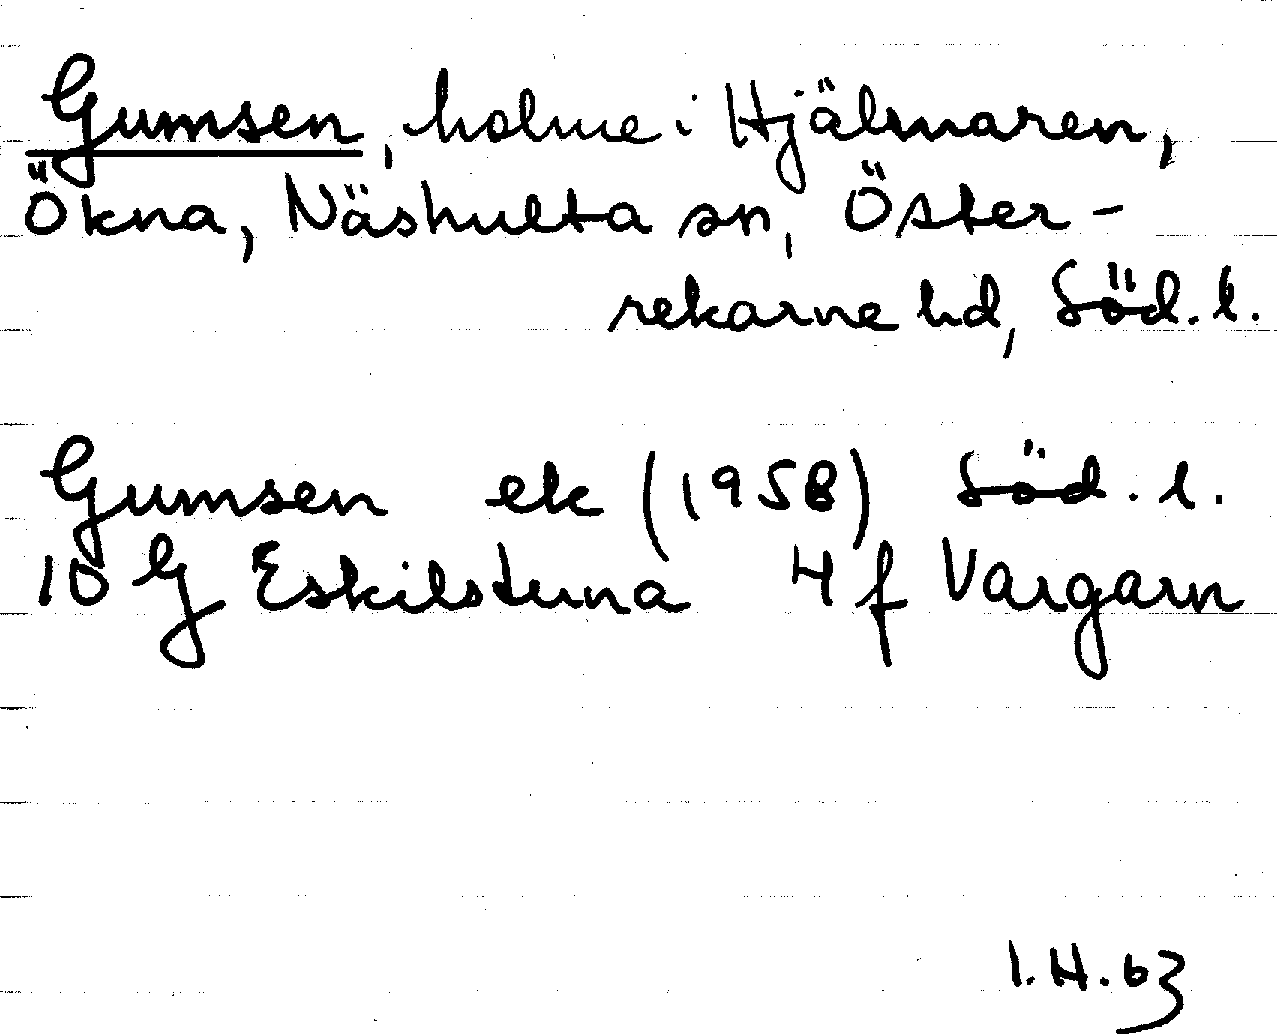 Gumsen, holme i Hjälmaren,
Ökna, Näshulta sn, Öster-
rekarne hd, Söd. l.
Gumsen ek (1958) Söd. l.
10 G Eskilstuna 4 f Vargarn
I.H. 63